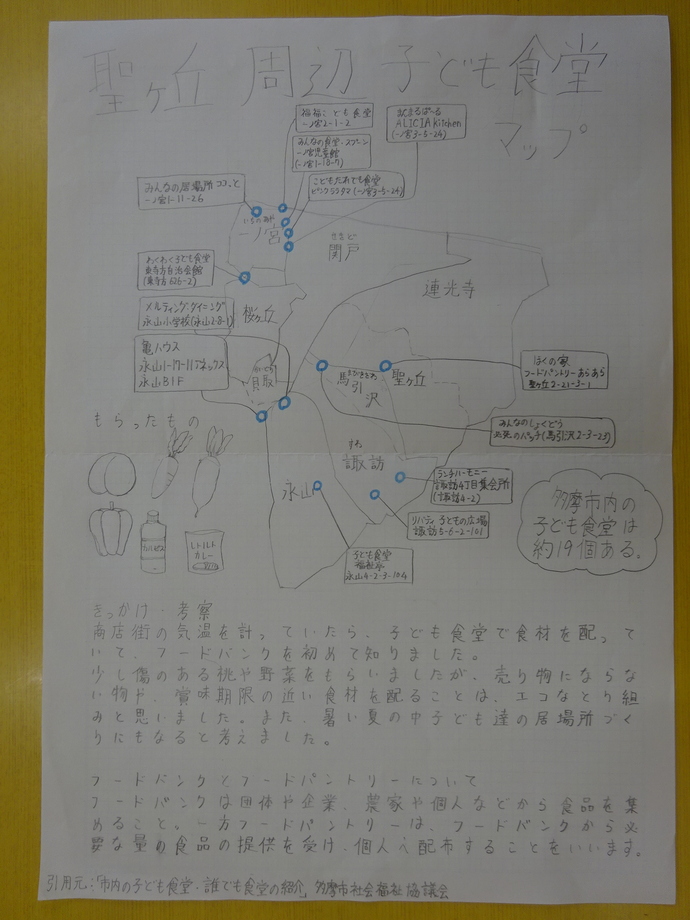 聖ヶ丘 周辺 子ども食堂
マップ
福福こども食堂
一ノ宮2-1-2
ALICIA Kitchen
(一ノ宮3-5-24)
みんなの食堂・スプーン
一ノ宮児童館
(一ノ宮1-18-7)
こどもだれでも食堂
(一ノ宮3-5-24)
みんなの居場所 ココ、と
一ノ宮1-11-26
いちのみや
一ノ宮
せきど
関戸
わくわく子ども食堂
東寺方自治会館
(東寺方626-2)
連光寺
桜ヶ丘
メルティングダイニング
永山小学校(永山2-8-1)
亀ハウス
永山1-17-11アネックス
永山B1F
かいどり
貝取
まひきざわ
馬引沢
聖ヶ丘
ぼくの家
フードパントリーあらあら
聖ヶ丘2-21-3-1
みんなのしょくどう
(馬引沢2-3-23)
もらったもの
すわ
諏訪
ランチハーモニー
諏訪4丁目集会所
(諏訪4-2)
永山
リバティ子どもの広場
諏訪5-6-2-101
多摩市内の
子ども食堂は
約19個ある。
レトルト
カレー
子ども食堂
福祉亭
永山4-2-3-104
きっかけ・考察
商店街の気温を計っていたら、子ども食堂で食材を配って
いて、フードバンクを初めて知りました。
少し傷のある桃や野菜をもらいましたが、売り物にならな
い物や、賞味期限の近い食材を配ることは、エコなとり組
みと思いました。また、暑い夏の中子ども達の居場所づく
りにもなると考えました。
フードバンクとフードパントリーについて
フードバンクは団体や企業、農家や個人などから食品を集
めること。一方フードパントリーは、フードバンクから必
要な量の食品の提供を受け、個人へ配布することをいいます。
引用元:「市内の子ども食堂・誰でも食堂の紹介」多摩市社会福祉協議会